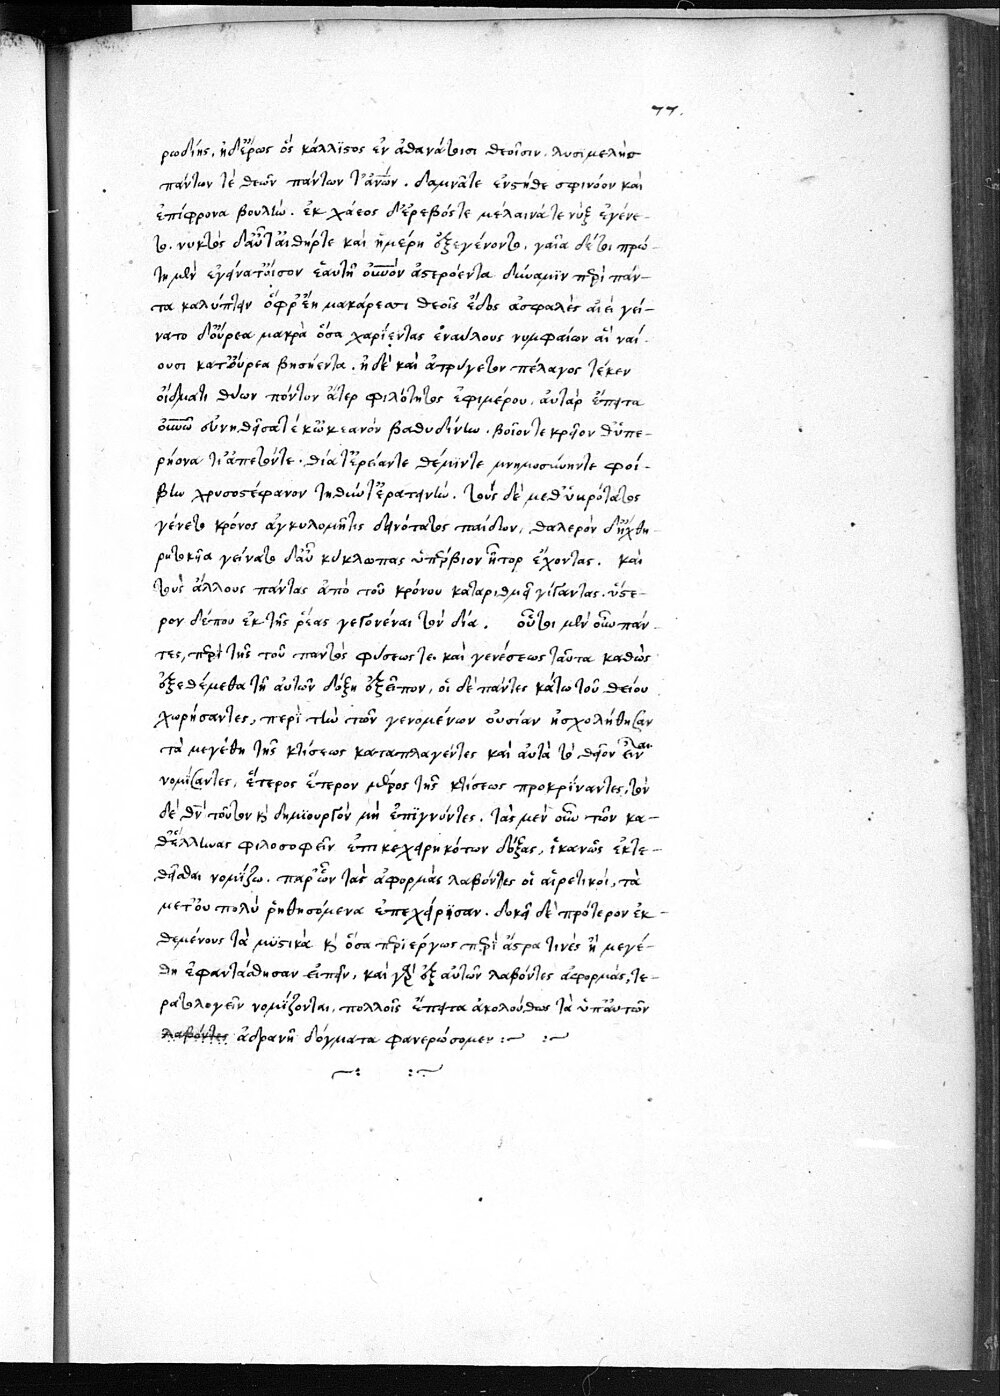 77.
ρωδίης, ἠδ' ἔρως ὃς κάλλιστος ἐν ἀθανάτοισι θεοῖσιν. λυσιμελὴς
πάντων τὲ θεῶν πάντων τ' ἀνων. δαμνᾶτε ἐνστήθε σφινόον καὶ
ἐπίφρονα βουλήν. ἐκ χάεος δ' ἐρεβόςτε μέλαινά τε νὺξ ἐγένε-
το. νυκτὸς δ' αὖτ' αἰθήρτε καὶ ἡμέρη ἐξεγένοντο. γαῖα δέ τοι πρώ-
τη μὲν ἐγείνατο ἶσον ἑαυτῇ οὐνὸν ἀστερόεντα δύναμϊν περὶ πάν-
τα καλύπτειν ὄφρ' εἴη μακάρεσσι θεοῖς ἕδος ἀσφαλὲς αἰεὶ γεί-
νατο δ' οὔρεα μακρὰ ὅσα χαρίεντας ἐναύλους νυμφαίων αἳ ναί-
ουσι κατ' οὔρεα βησήεντα. ἠδὲ καὶ ἀτρύγετον πέλαγος τέκεν
οἴδματι θύων πόντον ἄτερ φιλότητος ἐφιμέρου. αὐτὰρ ἔπειτα
οὐνῶ σύνηθησατέ κ' ὠκεανὸν βαθυδίνην. βοῖόντε κρῆον θ' ὑπε-
ρήονα τἰαπετόντε. θία τ' ἐρείαντε θέμϊντε μνημοσύνηντε φοί-
βην χρυσοστέφανον τηθύν τ' ἐρατεινήν. τοὺς δὲ μεθ' ὑκρότατος
γένετο κρόνος ἀγκυλομῆτις δεινότατος παίδων, θαλερὸν δ' ἤχθη-
ρητοκῆα γείνατο δ' αὖ κύκλωπας ὑπέρβιον ἦτορ ἔχοντας. καὶ
τοὺς ἄλλους πάντας ἀπὸ τοῦ κρόνου καταριθμεῖ γίγαντας. ὕστε-
ρον δέπου ἐκ τῆς ῥέας γεγονέναι τὸν δία. οὗτοι μὲν οὖν πάν-
τες, περὶ τῆς τοῦ παντὸς φύσεως τε καὶ γενέσεως ταῦτα καθὼς
ἐξεθέμεθα τῇ αὐτῶν δόξῃ ἐξεῖπον, οἱ δὲ πάντες κάτω τοῦ θείου
χωρήσαντες, περὶ τὴν τῶν γενομένων οὐσίαν ἠσχολήθησαν
τὰ μεγέθη τῆς κτίσεως καταπλαγέντες καὶ αὐτὰ τὸ θεῖον εἶναι
νομίσαντες, ἕτερος ἕτερον μέρος τῆς κτίσεως προκρίναντες, τὸν
δὲ θν τούτων κ δημϊουργὸν μὴ ἐπϊγνόντες. τὰς μὲν οὖν τῶν κα-
θ' ἕλληνας φιλοσοφεῖν ἐπικεχειρηκότων δόξας, ἱκανῶς ἐκτε-
θεῖσθαι νομίζω. παρ' ὧν τὰς ἀφορμὰς λαβόντες οἱ αἱρετικοὶ, τὰ
μετ' οὐ πολὺ ῥηθησόμενα ἐπεχείρησαν. δοκεῖ δὲ πρότερον ἐκ-
θεμένους τὰ μϋστικὰ κ ὅσα περϊέργως περὶ ἄστρα τινὲς ἢ μεγέ-
θη ἐφαντάσθησαν εἰπεῖν, καὶ γὰρ ἐξ αὐτῶν λαβόντες ἀφορμὰς, τε-
ρατολογεῖν νομίζονται. πολλοῖς ἔπειτα ἀκολούθως τὰ ὑπ' αὐτῶν
λαβόντες ἀδρανῆ δόγματα φανερώσομεν :~ :~
~: :~